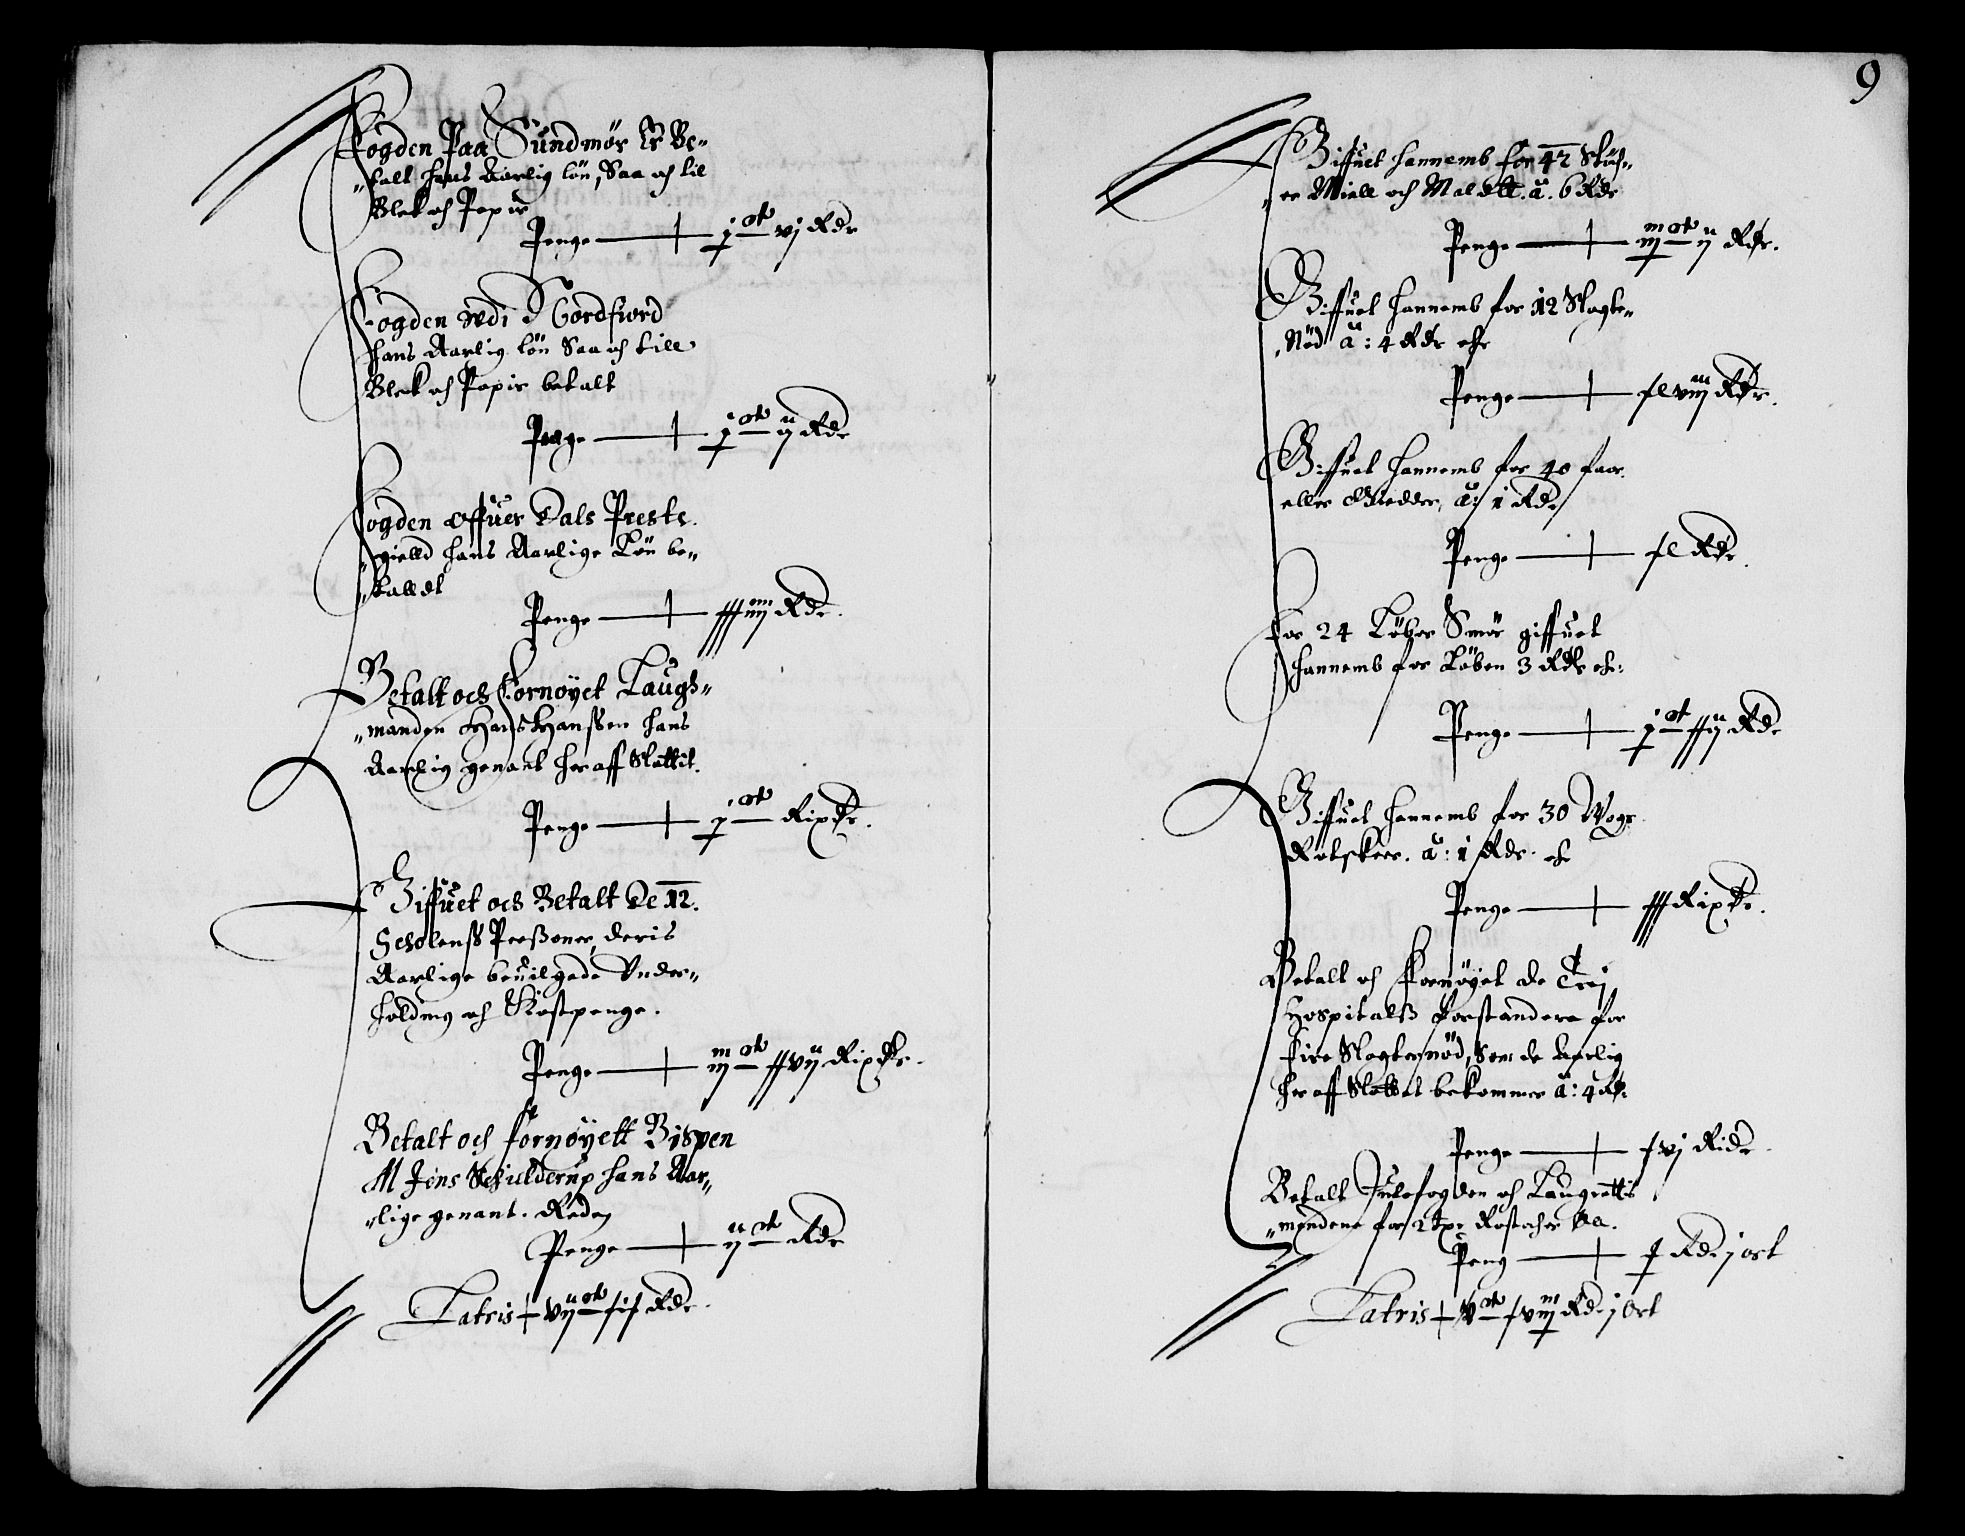 Fogden Paa Sundmør Er Be„
„talt hans Aarlig løn, Saa och til
Blek och Papir
Penge ——— j ct vj Rdr
Fogden vdi Nordfiord
hans Aarlig løn Saa och till
Blek och Papir betalt
Penge ——— j ct ij Rdr
Fogden offuer Dals Preste
„gielld hans Aarlige Løn be„
„talldt
Penge ——— xxxiiij Rdr.
Betalt och Fornøyet Laugh„
„manden Hans Hanssen hans
Aarlig genant her aff Slottit.
Penge ——— j ct Rixdr.
Giffuet och Betalt De 12.
Scholenss Perßoner, deris
Aarlige beuilgede Vnder„
holding och Kostpenge.
Penge ——— iij ct xxvij Rixdr.
Betalt och fornøyett Bispen
M Jens Schielderup hans Aar„
„lige genant. Reden
Penge ——— ij ct Rdr
Latris vij ct xix Rdr.
9
Giffuet hannemb for 42 Støch„
„er Miell och Maldtt. a. 6 Rdr
Penge ——— iij ct ij Rdr.
Giffuet hannemb for 12 Slagte„
„Nød a: 4 Rdr er
Penge ——— xlviij Rdr.
Giffuet hannemb for 40 faar
eller Giedder, a: 1 Rdr
Penge ——— xl Rdr.
For 24 Løber Smør giffuet
hannemb for Løben 3 Rdr er:
Penge ——— j ct xxij Rdr
Giffuet hannemb for 30 Woger
Rotskeer. a: 1 Rdr. er
Penge ——— xxx Rixdr.
Betalt och Fornøyet de Trej
Hospitalß Forstandere for
Fire Slagtenød, Som de Aarlig
her aff Slottet bekommer a: 4 Rd:
Penge ——— xvj Ridr.
Betalt Julefogden och Laugrettis
„mendene for 2 tdr Rostocher Øll.
Peng ——— x Rdr j ort
Latris v ct xviij Rdr j Ort